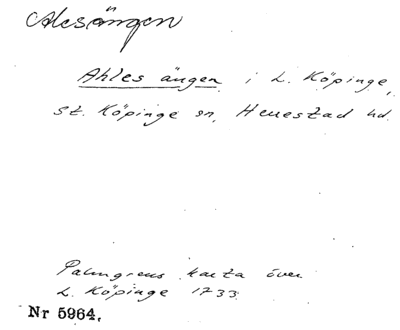 Alesängen
Ahles ängen i L. Köpinge,
St. Köpinge sn, Herrestad hd.
Palmgrens karta över
L. Köpinge 1733.
Nr 5964.